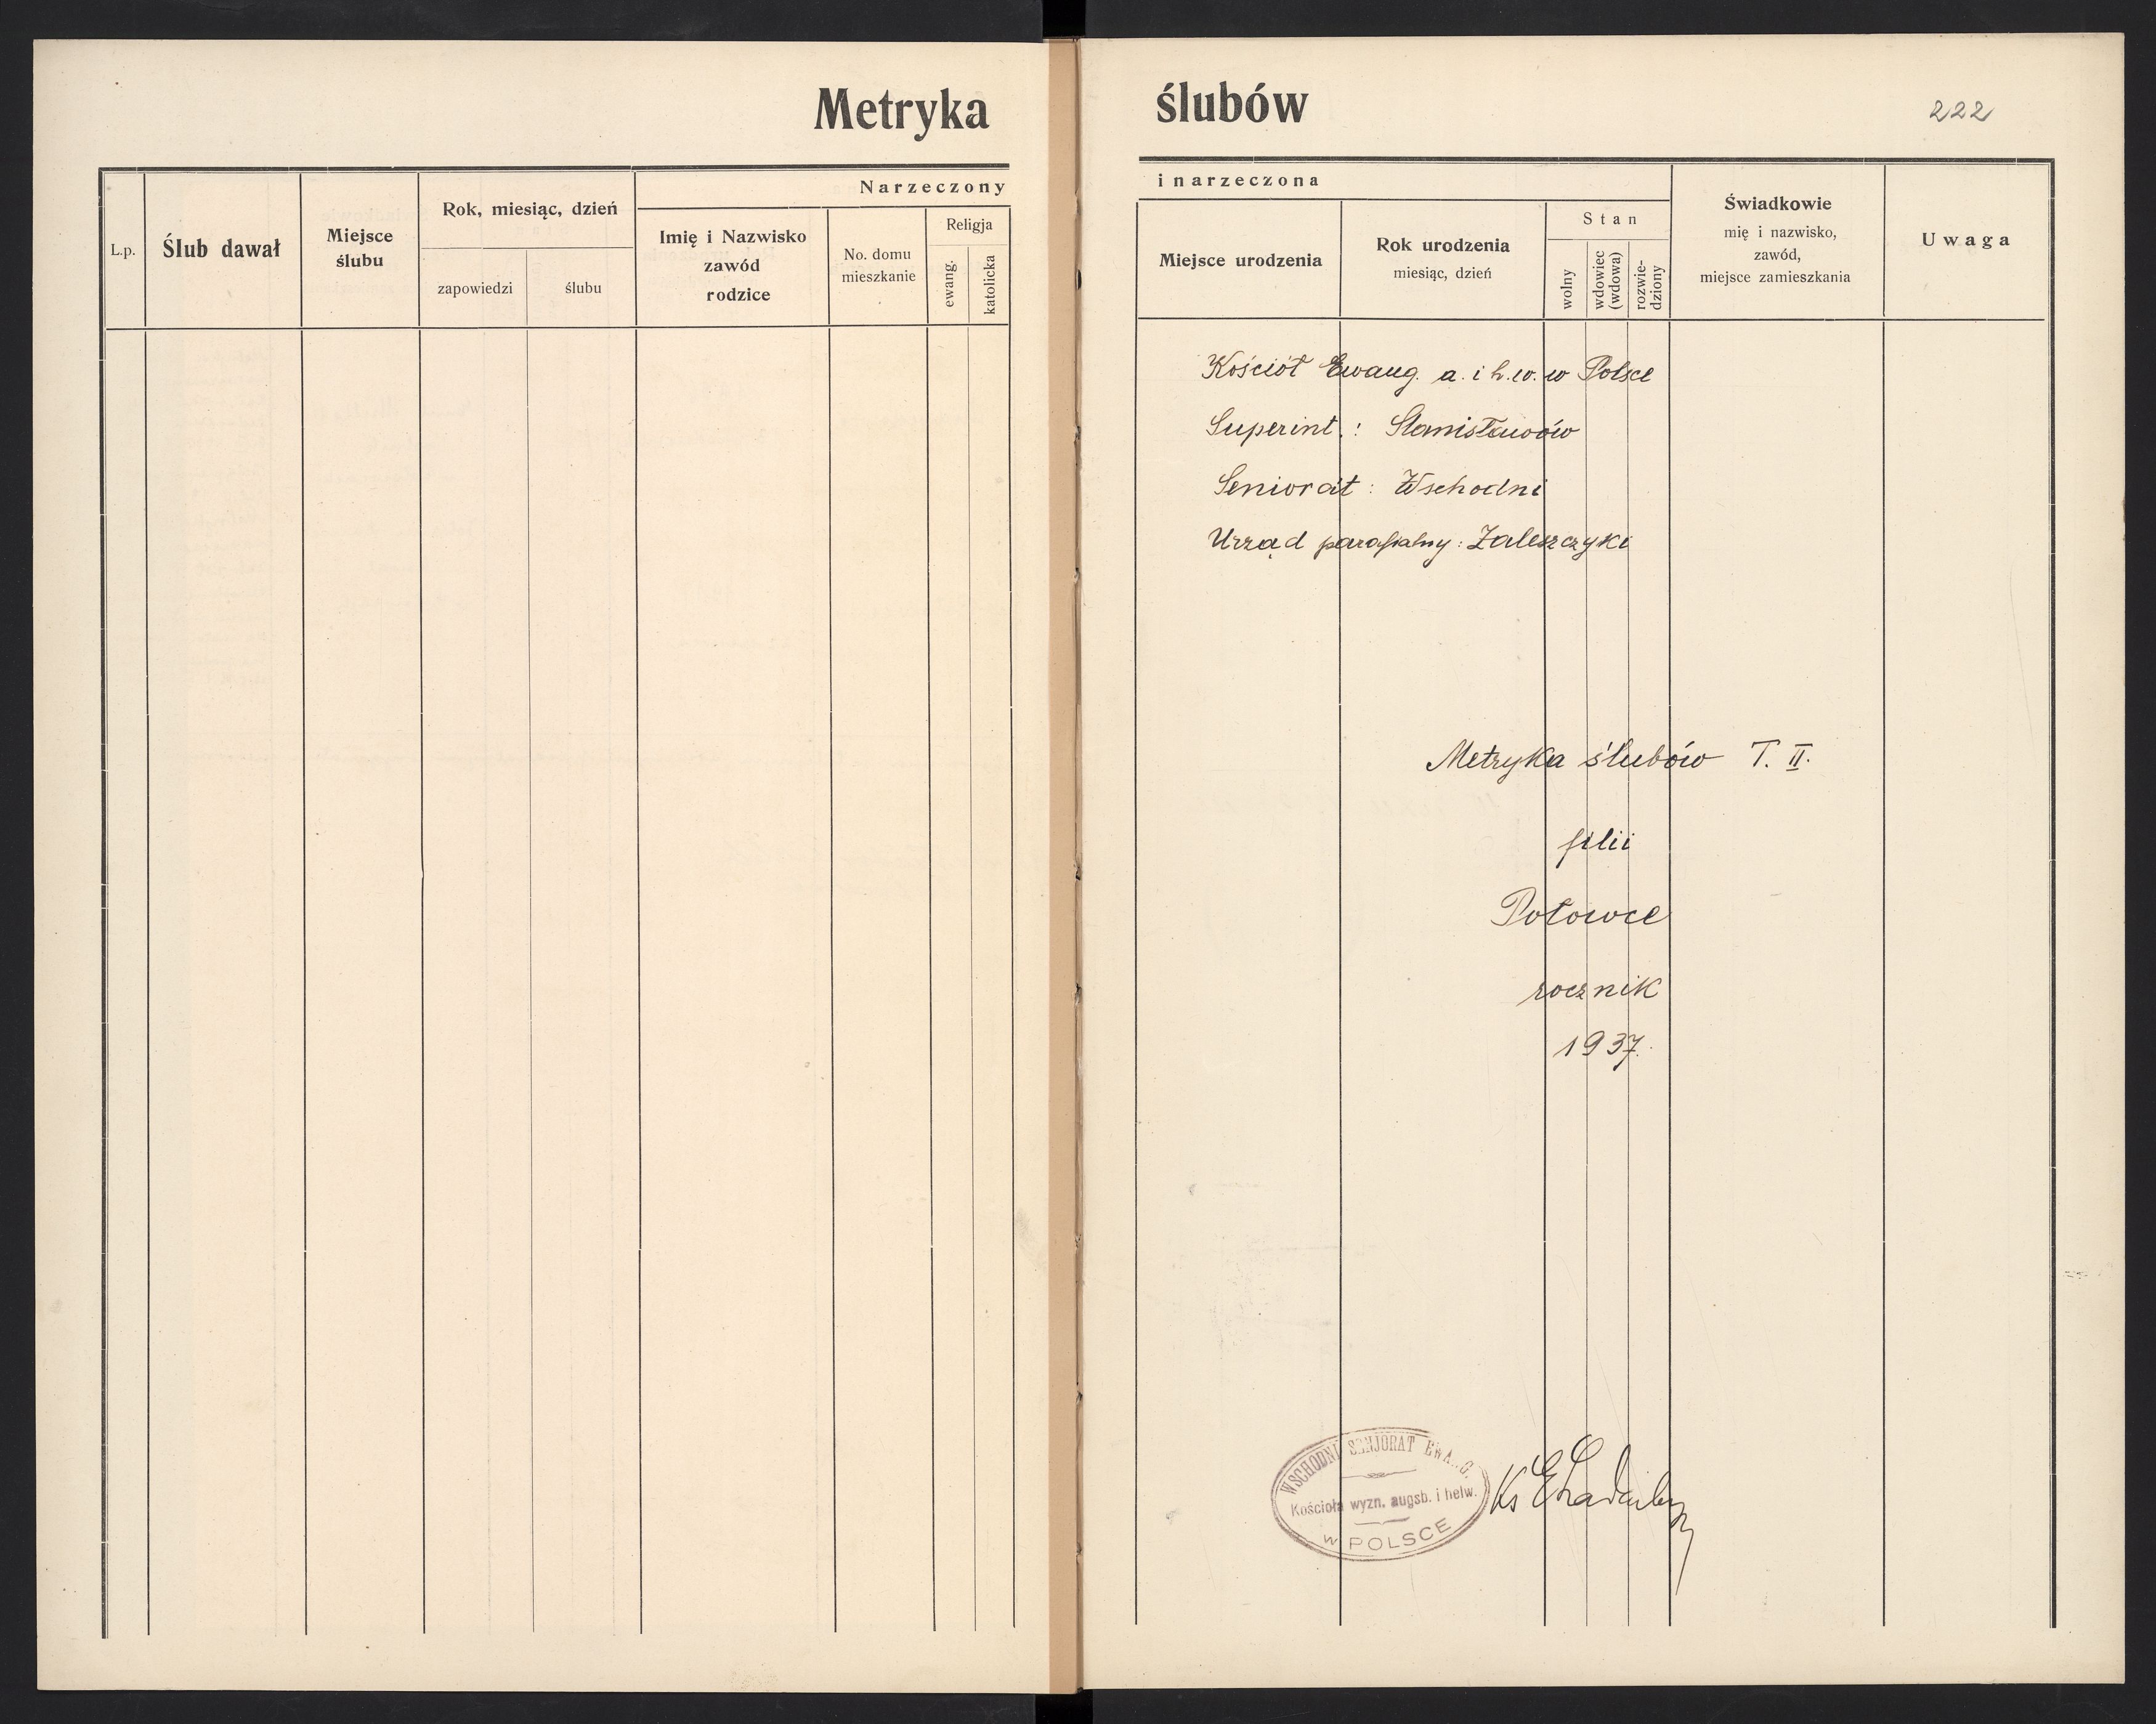 Metryka ślubów
222
L.p.
Ślub dawał
Miejsce
ślubu
Rok, miesiąc, dzień
zapowiedzi
ślubu
Narzeczony
Imię i Nazwisko
zawód
rodzice
No. domu
mieszkanie
Religja
ewang.
katolicka
i narzeczona
Miejsce urodzenia
Rok urodzenia
miesiąc, dzień
Stan
wolny
wdowiec
(wdowa)
rozwie-
dziony
Świadkowie
mię i nazwisko,
zawód,
miejsce zamieszkania
Uwaga
Kościół Ewang. a. i h. w. w Polsce
Superint.: Stanisławów
Seniorat: Wschodni
Urząd parafialny: Zaleszczyki
Metryka ślubów T. II.
filii
Potowce
rocznik
1937.
WSCHODNI SENJORAT EWANG.
Kościoła wyzn. augsb. i helw.
w POLSCE
Ks